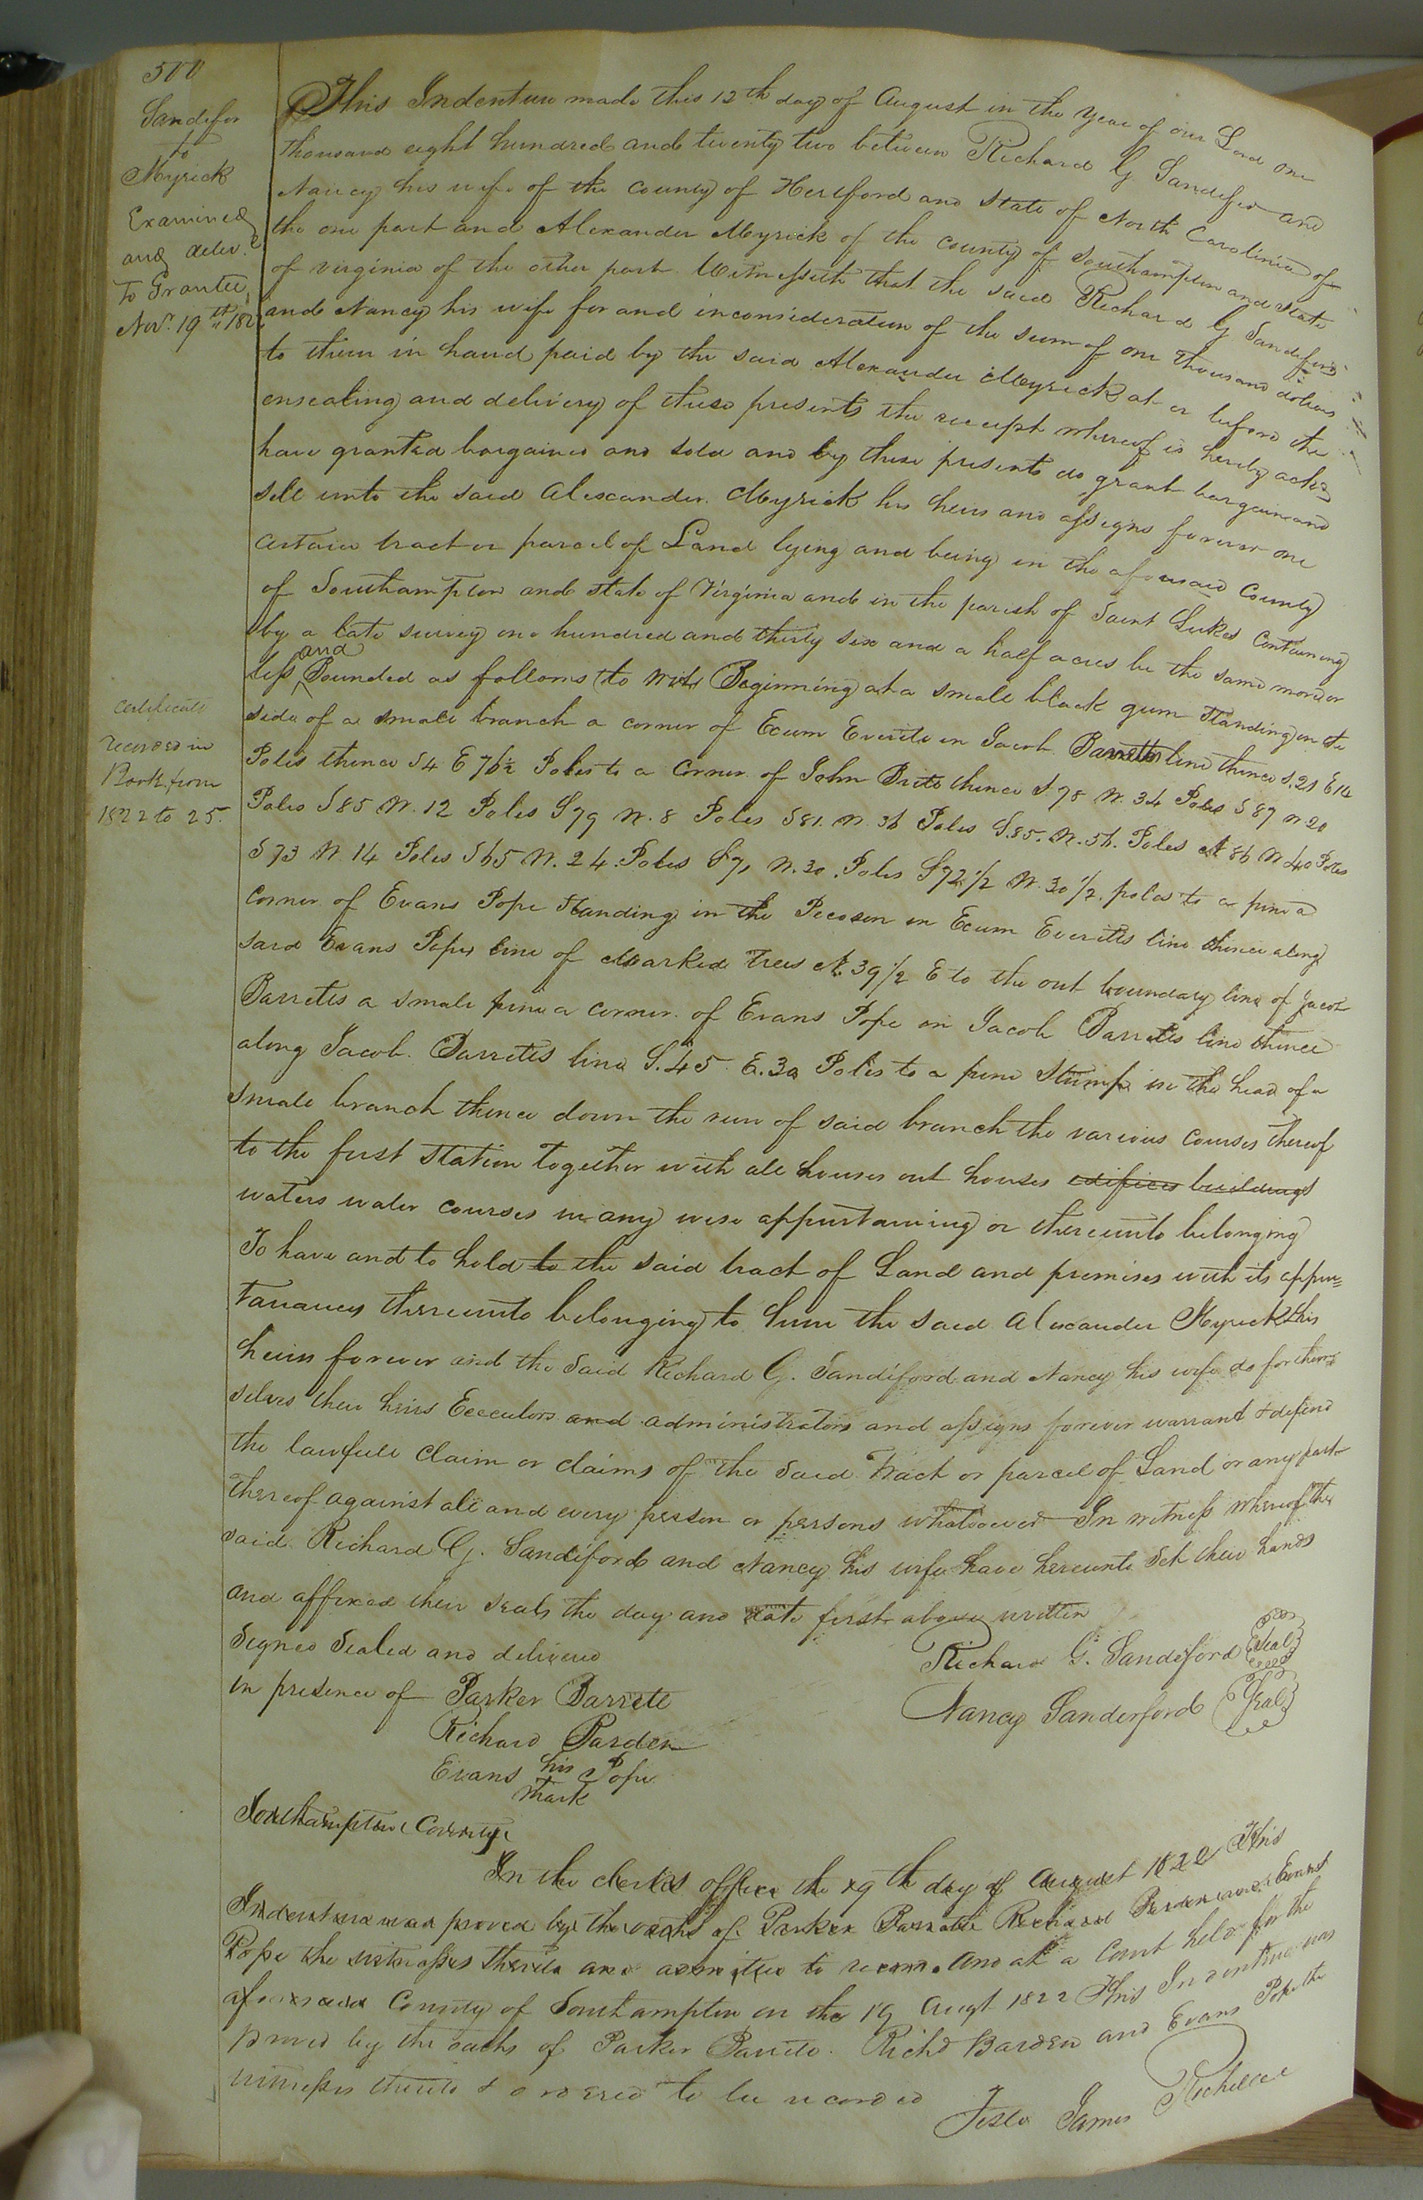 500
Sandifer
to
Myrick
Examined
and deliv.d
To Grantee
Nov.r 19th 182
This Indenture made this 12th day of August in the year of our Lord one
thousand eight hundred and twenty two between Richard G Sandifer and
Nancy his wife of the County of Hertford and State of North Carolina of
the one part and Alexander Myrick of the County of Southampton and State
of Virginia of the other part Witnesseth that the said Richard G Sandiford
and Nancy his wife for and inconsideration of the sum of one thousand dollars
to them in hand paid by the said Alexander Myrick at or before the
ensealing and delivery of these presents the receipt whereof is hereby ackd
have granted bargained and sold and by these presents do grant bargain and
sell unto the said Alexander Myrick his heirs and assigns forever one
certain tract or parcel of Land lying and being in the aforesaid County
of Southampton and State of Virginia and in the parish of Saint Lukes Containing
by a late survey one hundred and thirty six and a half acres be the same more or
less and Bounded as follows (to wit) Beginning at a small black gum standing on the
side of a small branch a corner of Exum Everitt in Jacob Barretts line thence S. 21 E 14
certificate
recorded in
Book from
1822 to 25.
Poles thence S4 E 76½ Poles to a Corner of John Brits thence S 78 W. 34 Poles S 87 W 20
Poles S85 W. 12 Poles S79 W. 8 Poles S81. W. 36 Poles S.85. W. 56. Poles N 86 W 40 Poles
S73 W. 14 Poles S65 W. 24. Poles S71 W. 30. Poles S72½ W. 30½ poles to a pine a
corner of Evans Pope standing in the Pecosen in Exum Everitts line thence along
said Evans Popes line of Marked Trees N. 39½ E to the out boundary line of Jacob
Barretts a small pine a corner of Evans Pope in Jacob Barretts line thence
along Jacob Barretts line S. 45 E. 30 Poles to a pine stump in the head of a
small branch thence down the run of said branch the various courses thereof
to the first Station together with all houses out houses edifices buildings
waters water courses in any wise appurtaining or thereunto belonging
To have and to hold to the said tract of Land and premises with its appur=
tanances thereunto belonging to him the said Alexander Myrick & his
heirs forever and the Said Richard G. Sandiford and Nancy his wife do for them=
selves their heirs Executors and administrators and assigns forever warrant & defend
the lawfull Claim or claims of the Said Tract or parcel of Land or any part
thereof against all and every person or persons whatsoever In witness whereof the
said Richard G. Sandiford and Nancy his wife have hereunto Set their hands
and affixed their seals the day and date first above written
Signed Sealed and delivered
in presence of Parker Barrett
Richard G. Sandiford Seal
Nancy Sanderford Seal
Richard Barden
Evans his Pope
mark
Southampton County
In the clerks office the 19th day of August 1822 This
Indenture was proved by the oaths of Parker Barrett Richard Barden and Evans
Pope the witnesses thereto and admitted to record. And at a Court held for the
aforesaid County of Southampton on the 19 Augt 1822 This Indenture was
proved by the oaths of Parker Barrett. Richd Barden and Evans Pope the
witnesses thereto & ordered to be recorded
Teste James Rochelle